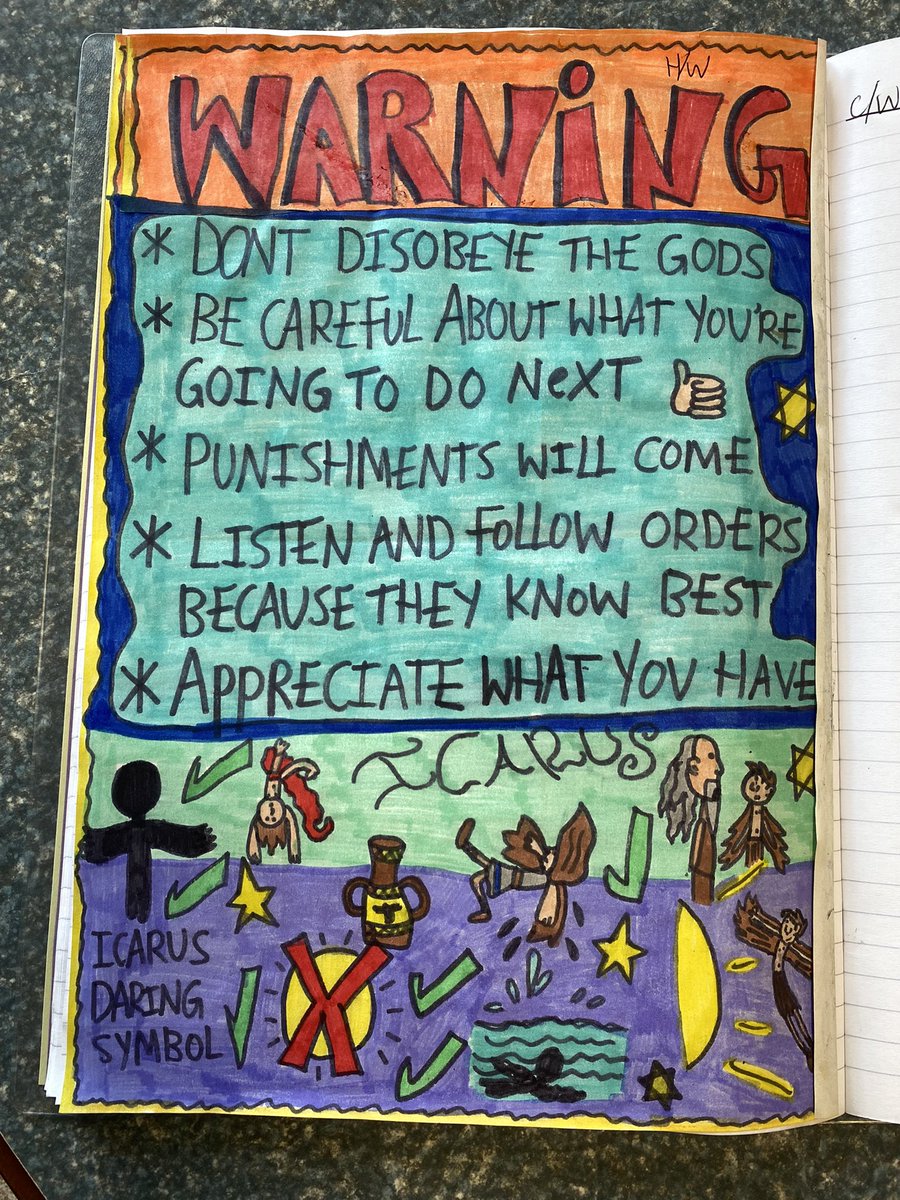 H/W
WARNiNG
* DONT DISOBEYE THE GODS
* BE CAREFUL ABOUT WHAT YOU'RE
GOING TO DO NeXT
* PUNISHMENTS WILL COME
* LISTEN AND FOLLOW ORDERS
BECAUSE THEY KNOW BEST
* APPRECIATE WHAT YOU HAVE
ICARUS
ICARUS
DARING
SYMBOL
C/W